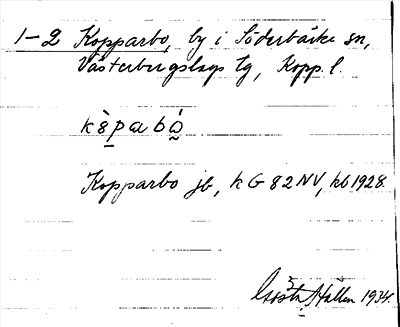 1-2 Kopparbo, by i Söderbärke sn,
Västerbergslags tg, Kopp. l.
kȍpabó̰
Kopparbo jb, k G 82 NV, kb 1928.
Gösta Hallén 1934.